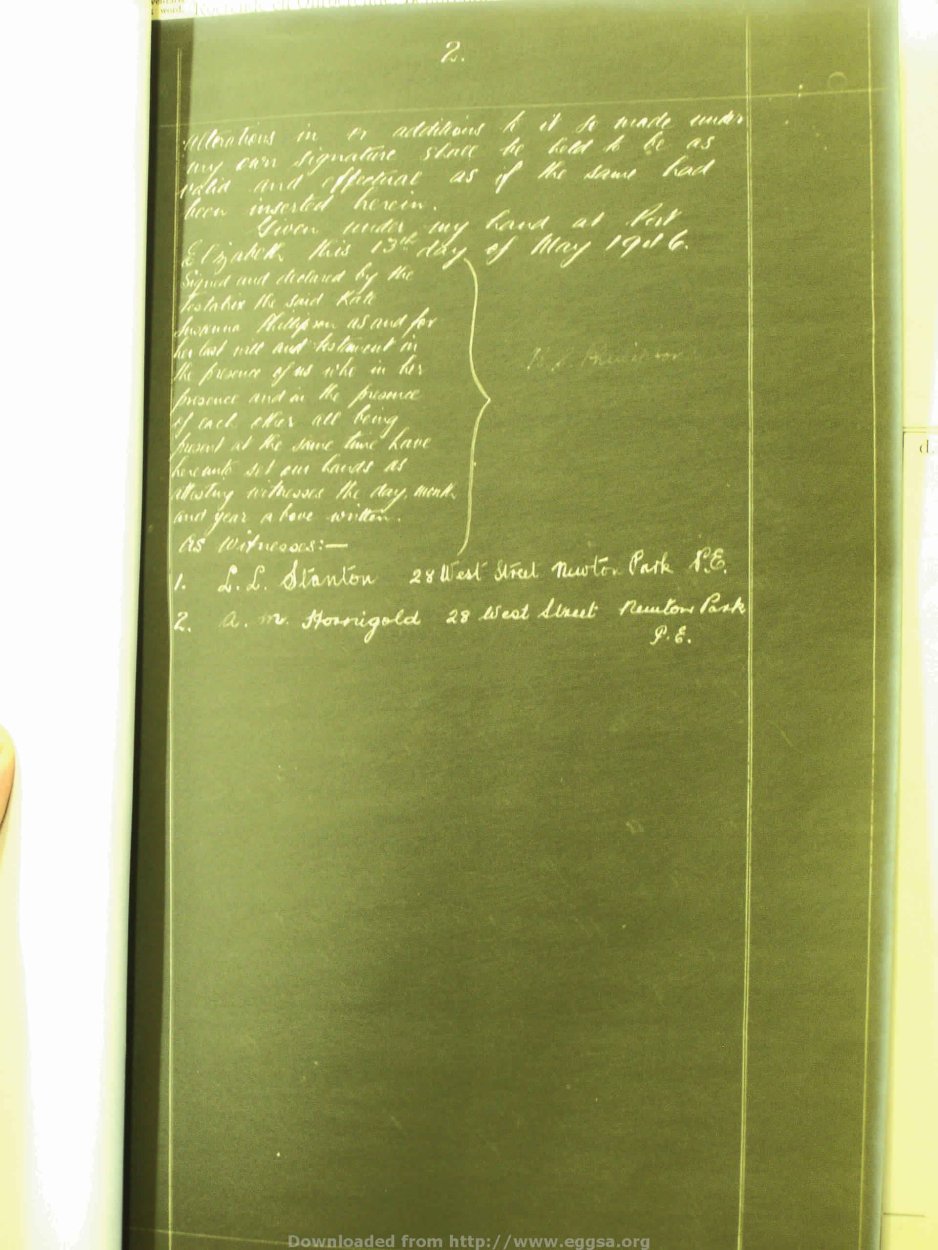 2.
alterations in or additions to it so made under
my own signature shall be held to be as
valid and effectual as if the same had
been inserted herein.
Given under my hand at Port
Elizabeth this 13th day of May 1946.
Signed and declared by the
testatrix the said Kate
Susanna Phillipson as and for
her last will and testament in
the presence of us who in her
presence and in the presence
of each other all being
present at the same time have
hereunto set our hands as
attesting witnesses the day, month
and year above written.
As Witnesses:—
1. L. L. Stanton 28 West Street Newton Park P.E.
2. A. M. Hornigold 28 West Street Newton Park
P.E.
Downloaded from http://www.eggsa.org